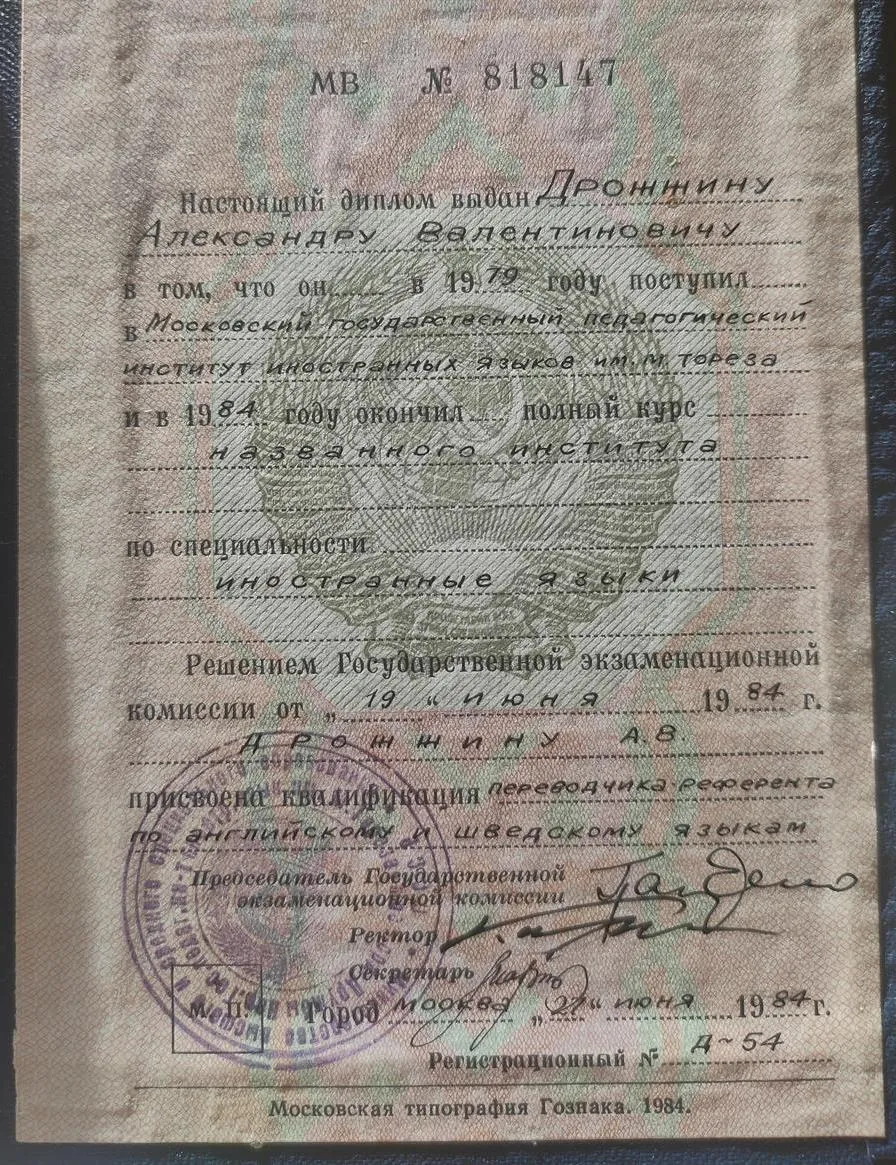 МВ № 818147
Настоящий диплом выдан Дрожжину
Александру Валентиновичу
в том, что он в 1979 году поступил
в Московский государственный педагогический
институт иностранных языков им. М. Тореза
и в 1984 году окончил полный курс
названного института
по специальности
иностранные языки
Решением Государственной экзаменационной
комиссии от „19“ июня 1984 г.
Дрожжину А.В.
присвоена квалификация переводчика-референта
по английскому и шведскому языкам
Председатель Государственной
экзаменационной комиссии
Ректор
Секретарь
М. П. Город Москва „21“ июня 1984 г.
Регистрационный № Д-54
Московская типография Гознака. 1984.